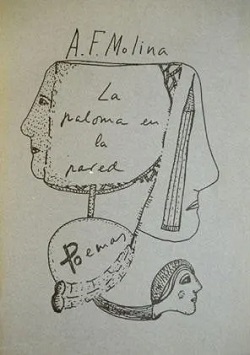 A. F. Molina
La
paloma en
la
pared
Poemas